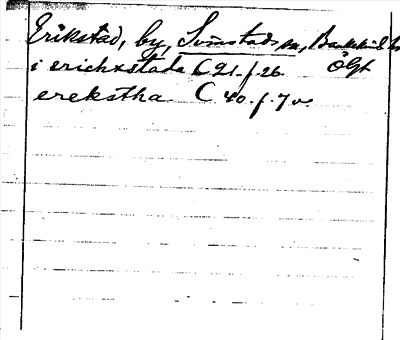 Erikstad, by, Svinstads sn, Bankekinds hd
i erichxstada C 21. f. 26. Ögl
erekstha C 40. f. 7 v.